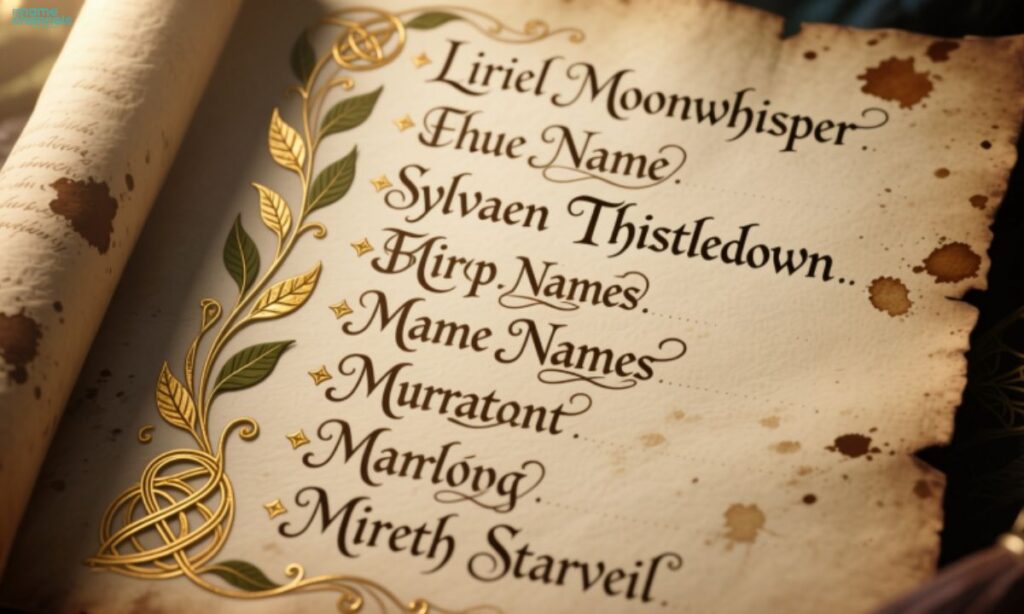 Liriel Moonwhisper..
Ehue Name.
Sylvaen Thistledown..
Names.
Mame Names
Murratont.
Manrlong.
Mireth Starveil.